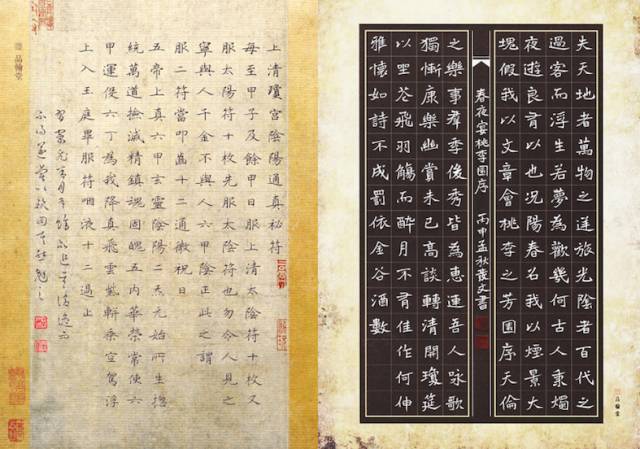 夫天地者萬物之逆旅光陰者百代之
過客而浮生若夢為歡幾何古人秉燭
夜遊良有以也況陽春召我以煙景大
塊假我以文章會桃李之芳園序天倫
春夜宴桃李園序 丙申孟秋 文書
之樂事羣季俊秀皆為惠連吾人詠歌
獨慚康樂幽賞未已高談轉清開瓊筵
以坐花飛羽觴而醉月不有佳作何伸
雅懷如詩不成罰依金谷酒數
品翰堂
上清瓊宮陰陽通真秘符
每至甲子及餘甲日服上清太陰符十枚又
服太陽符十枚先服太陰符也勿令人見之
寧與人千金不與人六甲陰正此之謂
服二符當叩齒十二通微祝曰
五帝上真六甲玄靈陰陽二炁元始所生總
統萬道撿滅精鎮魂固魄五內華榮常使六
甲運役六丁為我降真飛雲紫軿乘空駕浮
上入玉庭畢服符咽液十二過止
品翰堂